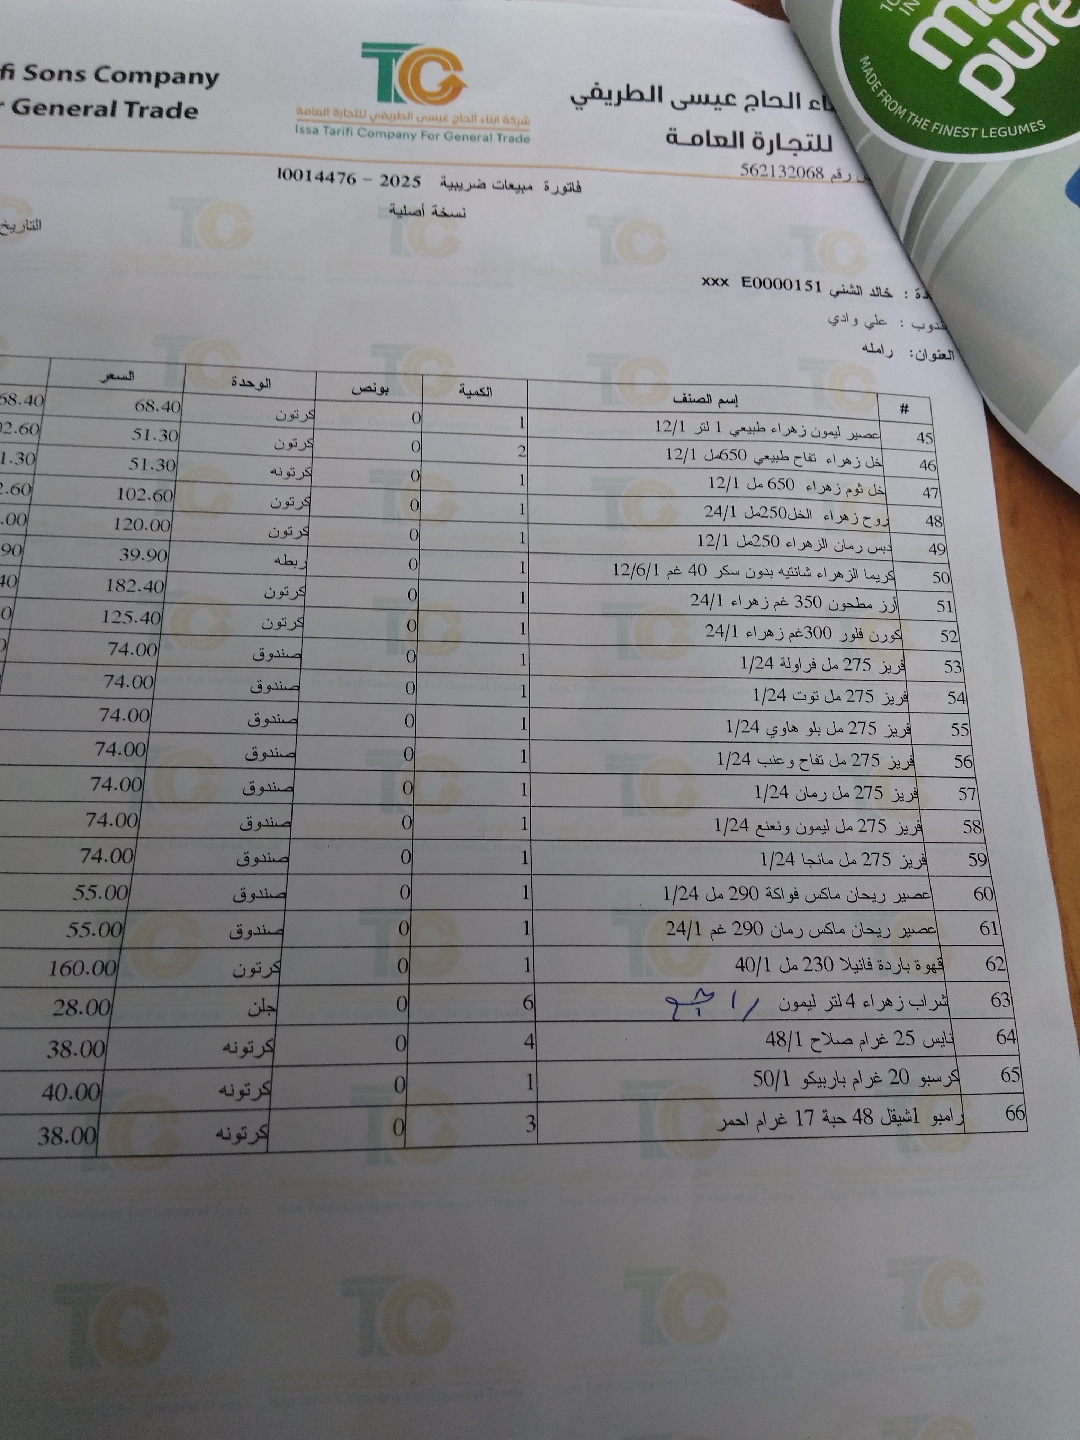 fi Sons Company
General Trade
TC
شركة ابناء الحاج عيسى الطريفي للتجارة العامة
Issa Tarifi Company For General Trade
اء الحاج عيسى الطريفي
للتجارة العامة
رقم 562132068
pure
MADE FROM THE FINEST LEGUMES
فاتورة مبيعات ضريبية 2025 - I0014476
نسخة أصلية
التاريخ
دة : خالد الشني E0000151 xxx
ندوب : علي وادي
العنوان: رامله
# إسم الصنف الكمية بونص الوحدة السعر
45 عصير ليمون زهراء طبيعي 1 لتر 12/1 1 0 كرتون 68.40 68.40
46 خل زهراء تفاح طبيعي 650مل 12/1 2 0 كرتون 51.30 02.60
47 خل ثوم زهراء 650 مل 12/1 1 0 كرتونه 51.30 1.30
48 روح زهراء الخل250مل 24/1 1 0 كرتون 102.60 2.60
49 دبس رمان الزهراء 250مل 12/1 1 0 كرتون 120.00 .00
50 كريما الزهراء شانتيه بدون سكر 40 غم 12/6/1 1 0 ربطه 39.90 90
51 أرز مطحون 350 غم زهراء 24/1 1 0 كرتون 182.40 40
52 كورن فلور 300غم زهراء 24/1 1 0 كرتون 125.40 0
53 فريز 275 مل فراولة 1/24 1 0 صندوق 74.00
54 فريز 275 مل توت 1/24 1 0 صندوق 74.00
55 فريز 275 مل بلو هاوي 1/24 1 0 صندوق 74.00
56 فريز 275 مل تفاح وعنب 1/24 1 0 صندوق 74.00
57 فريز 275 مل رمان 1/24 1 0 صندوق 74.00
58 فريز 275 مل ليمون ونعنع 1/24 1 0 صندوق 74.00
59 فريز 275 مل مانجا 1/24 1 0 صندوق 74.00
60 عصير ريحان ماكس فواكة 290 مل 1/24 1 0 صندوق 55.00
61 عصير ريحان ماكس رمان 290 غم 24/1 1 0 صندوق 55.00
62 قهوة باردة فانيلا 230 مل 40/1 1 0 كرتون 160.00
63 شراب زهراء 4 لتر ليمون 6 0 جلن 28.00
64 نايس 25 غرام صلاح 48/1 4 0 كرتونه 38.00
65 كرسبو 20 غرام باربيكو 50/1 1 0 كرتونه 40.00
66 رامبو 1شيقل 48 حبة 17 غرام احمر 3 0 كرتونه 38.00